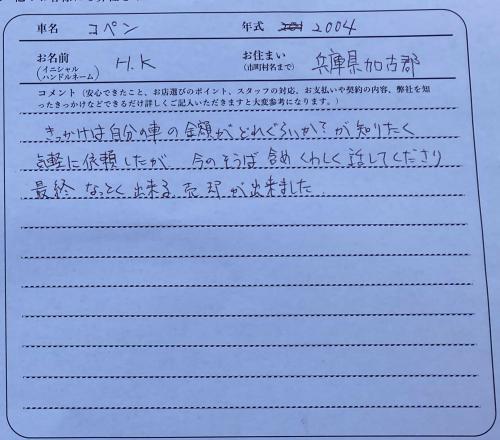 車名 コペン 年式 2004
お名前 (イニシャル ハンドルネーム) H.K お住まい (市町村名まで) 兵庫県加古郡
コメント（安心できたこと、お店選びのポイント、スタッフの対応、お支払いや契約の内容、弊社を知
ったきっかけなどできるだけ詳しくご記入いただきますと大変参考になります。）
きっかけは自分の車の金額がどれぐらいか？が知りたく
気軽に依頼したが 今のそうば含めくわしく話してくださり
最終 なっとく出来る売却が出来ました